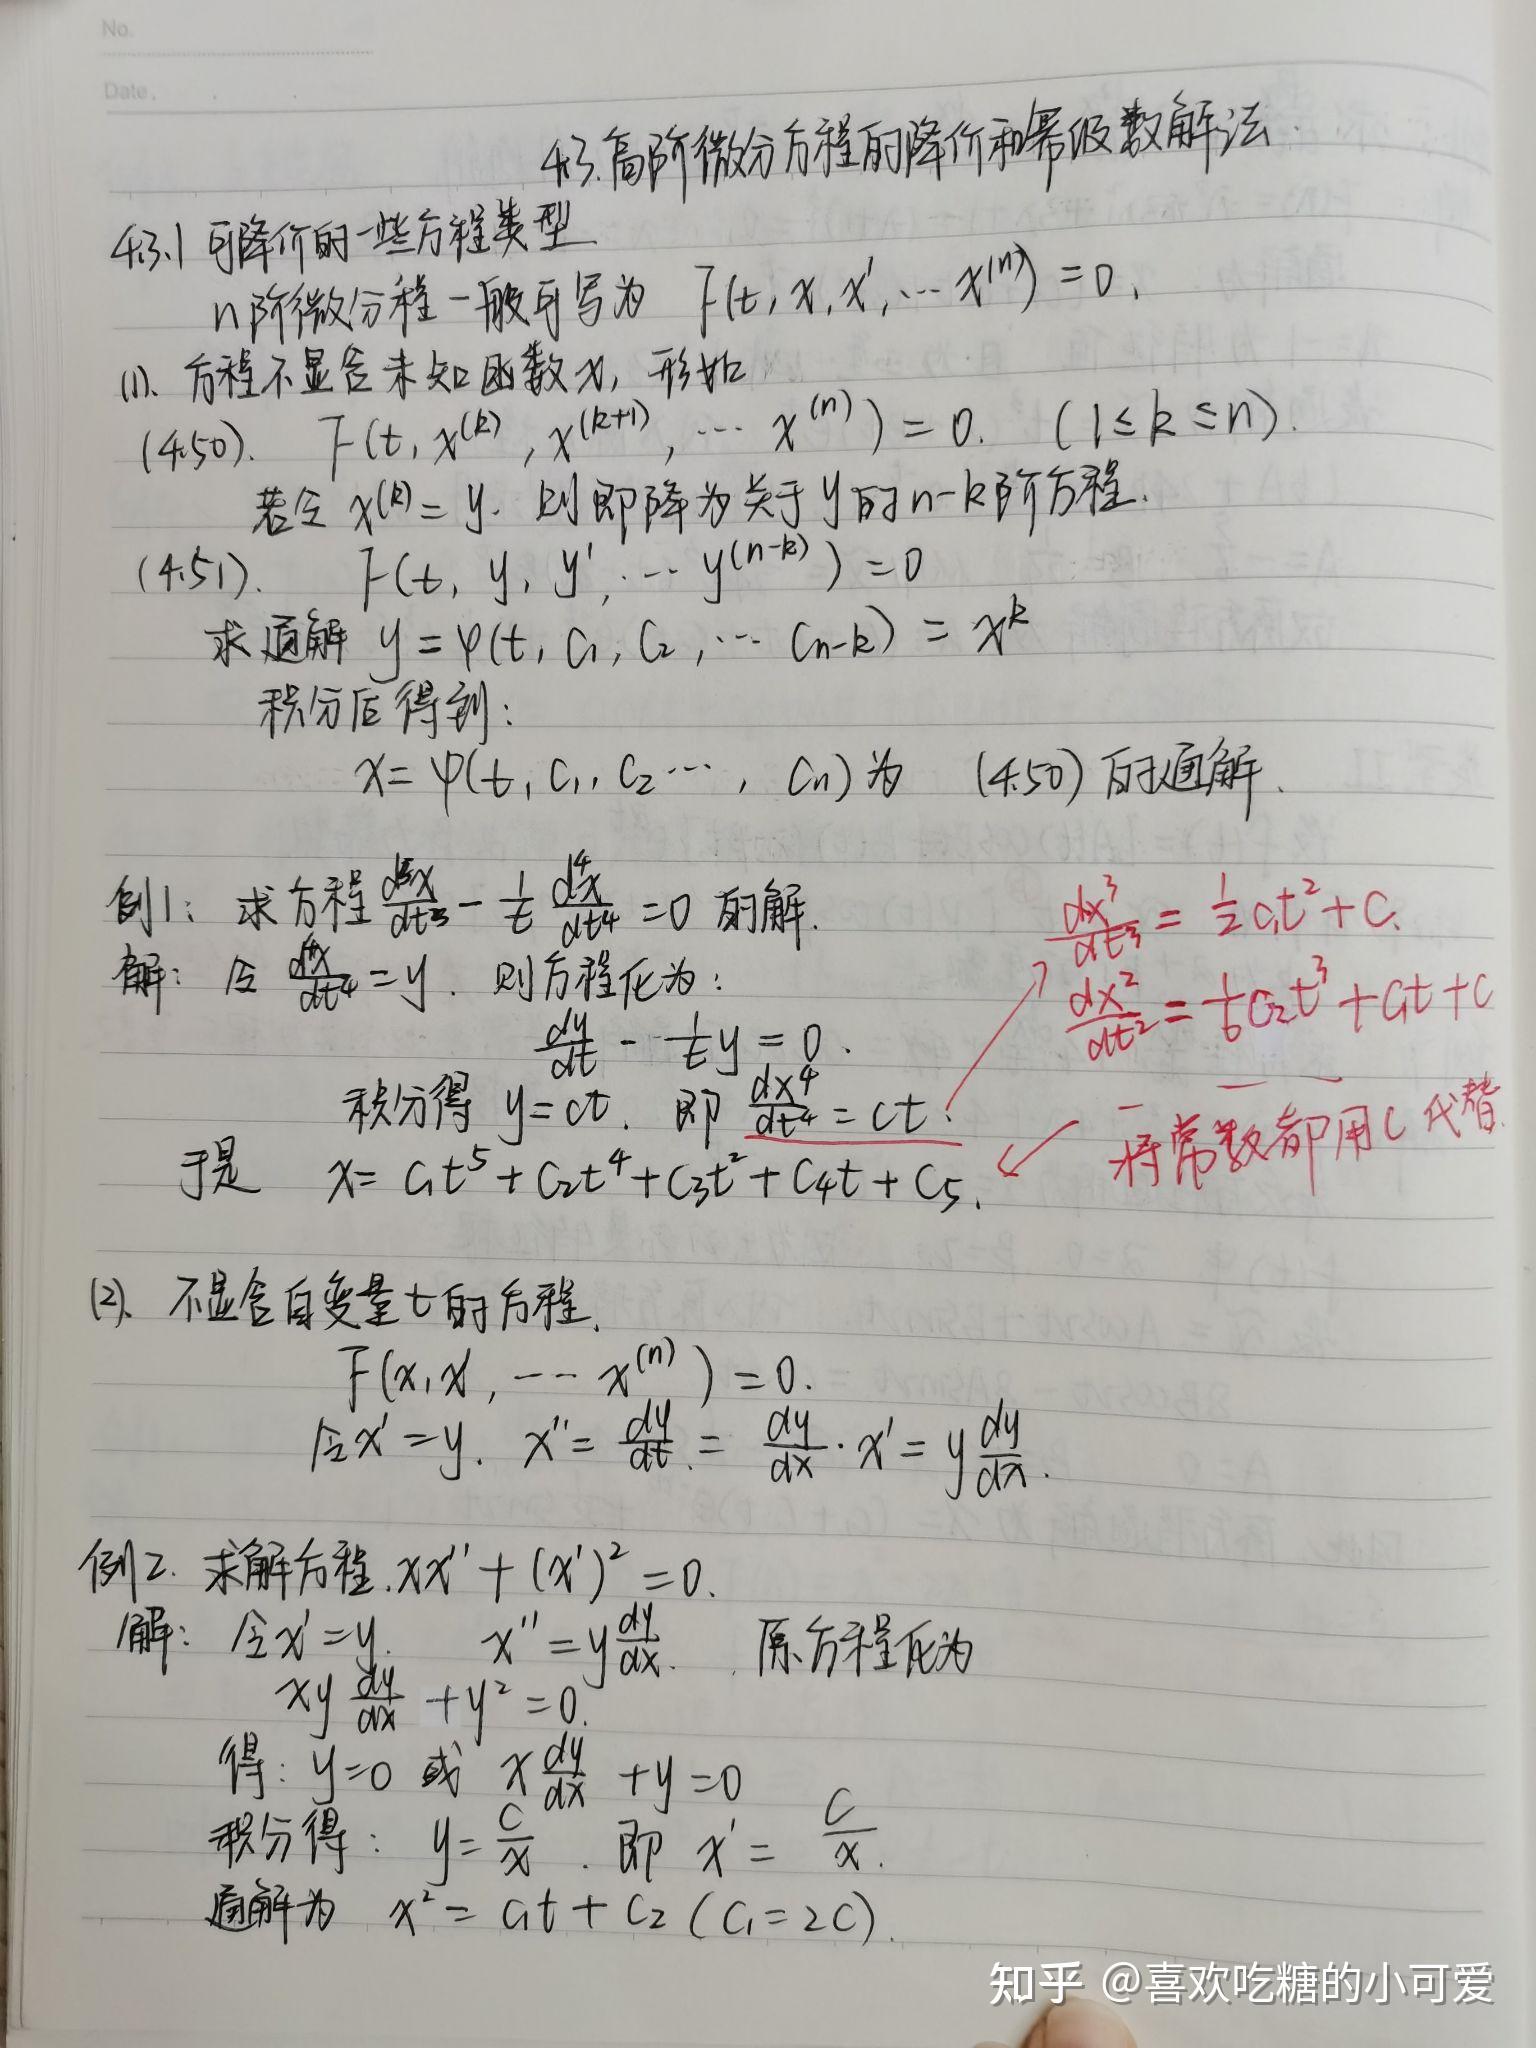 No.
Date.
4.3.高阶微分方程的降价和幂级数解法.
4.3.1 可降价的一些方程类型
n阶微分程一般可写为 F(t, x, x′, … x⁽ⁿ⁾) = 0,
(1). 方程不显含未知函数x, 形如
(4.50). F(t, x⁽ᵏ⁾, x⁽ᵏ⁺¹⁾, … x⁽ⁿ⁾) = 0. (1≤k≤n).
若令 x⁽ᵏ⁾ = y. 则即降为关于y的n-k阶方程.
(4.51). F(t, y, y′, … y⁽ⁿ⁻ᵏ⁾) = 0
求通解 y = φ(t, C₁, C₂, … Cn-k) = xᵏ
积分后得到:
x = ψ(t, C₁, C₂ …, Cn) 为 (4.50) 的通解.
例1: 求方程 d⁵x/dt⁵ - 1/t d⁴x/dt⁴ = 0 的解.
解: 令 d⁴x/dt⁴ = y. 则方程化为:
dy/dt - 1/t y = 0.
积分得 y = ct. 即 dx⁴/dt⁴ = ct.
于是 x = C₁t⁵ + C₂t⁴ + C₃t² + C₄t + C₅.
dx³/dt³ = 1/2 C₁t² + C.
dx²/dt² = 1/6 C₂t³ + C₁t + C
将常数都用C代替.
(2). 不显含自变量t的方程.
F(x, x′, … x⁽ⁿ⁾) = 0.
令x′ = y. x″ = dy/dt = dy/dx · x′ = y dy/dx.
例2. 求解方程. xx″ + (x′)² = 0.
解: 令x′ = y. x″ = y dy/dx. 原方程化为
xy dy/dx + y² = 0.
得: y=0 或 x dy/dx + y = 0
积分得: y = C/x. 即 x′ = C/x.
通解为 x² = C₁t + C₂ (C₁ = 2C).
知乎 @喜欢吃糖的小可爱